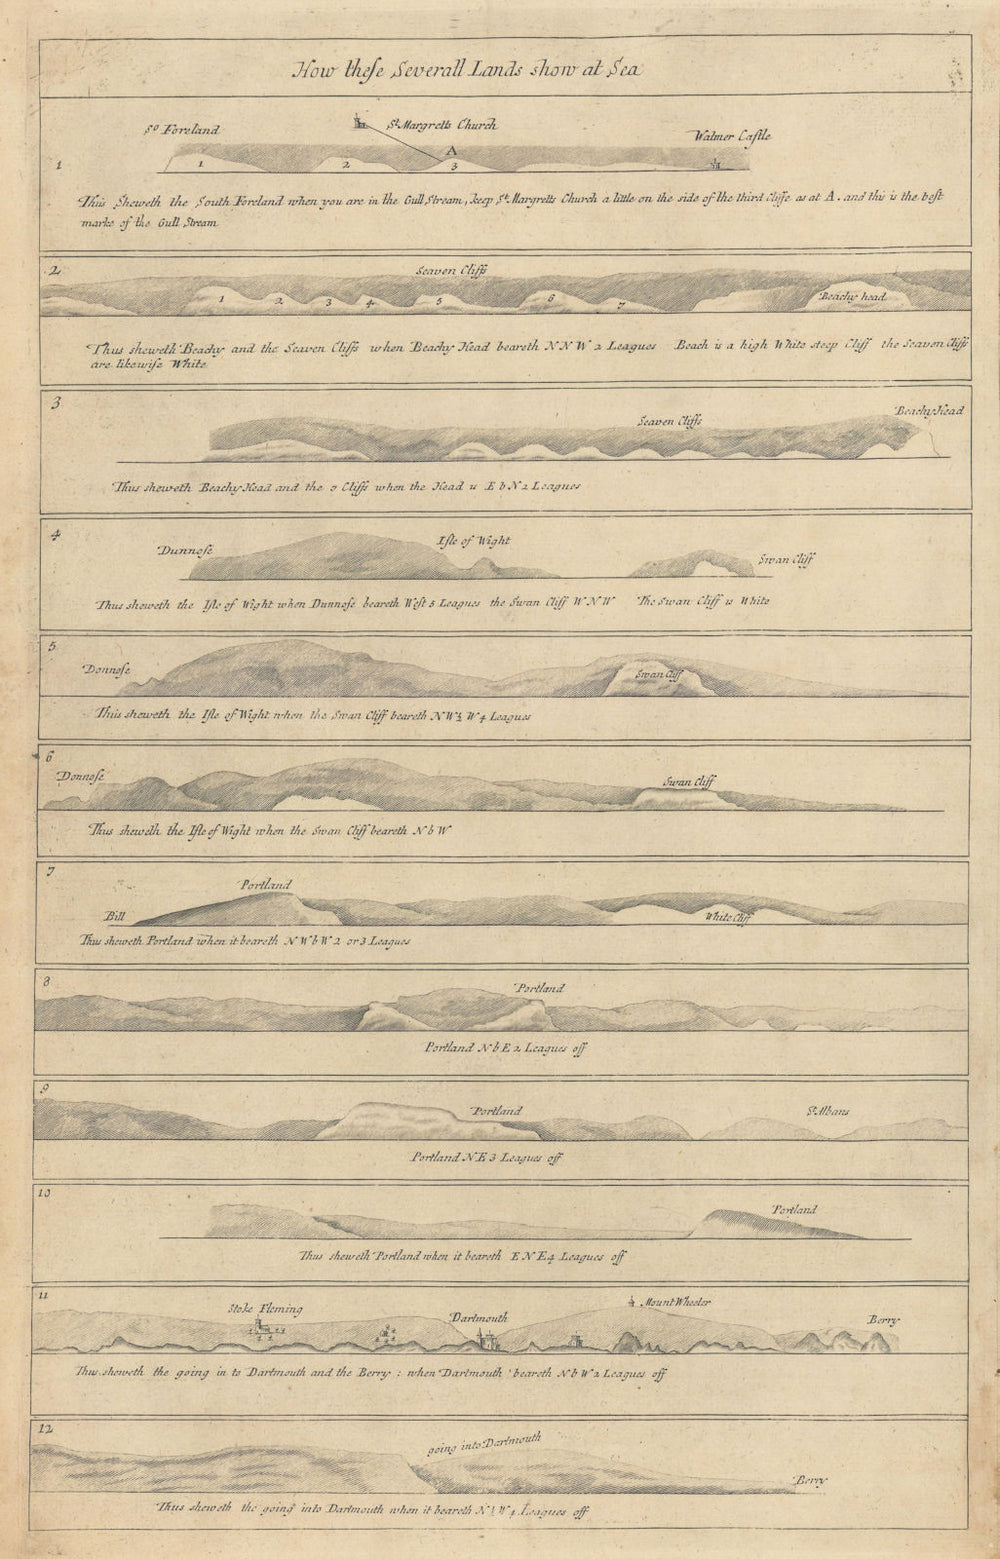 How these Severall Lands show at Sea
1
So Foreland
St. Margretts Church
Walmer Castle
A
1
2
3
Thus Sheweth the South Foreland when you are in the Gull Stream, keep St. Margretts Church a little on the side of the third Cliffe as at A. and this is the best
marke of the Gull Stream
2
Seaven Cliffs
1
2
3
4
5
6
7
Beachy head
Thus sheweth Beachy and the Seaven Cliffs when Beachy Head beareth N N W 2 Leagues Beach is a high White steep Cliff the Seaven Cliffs
are likewise White
3
Seaven Cliffs
Beachy Head
Thus sheweth Beachy Head and the Cliffs when the Head is E b N 2 Leagues
4
Dunnose
Isle of Wight
Swan Cliff
Thus sheweth the Isle of Wight when Dunnose beareth West 5 Leagues the Swan Cliff W N W The Swan Cliff is White
5
Donnose
Swan Cliff
Thus sheweth the Isle of Wight when the Swan Cliff beareth N W ½ W 4 Leagues
6
Donnose
Swan Cliff
Thus sheweth the Isle of Wight when the Swan Cliff beareth N b W
7
Portland
Bill
White Cliff
Thus sheweth Portland when it beareth N W b W 2 or 3 Leagues
8
Portland
Portland N b E 2 Leagues off
9
Portland
St. Albans
Portland N E 3 Leagues off
10
Portland
Thus sheweth Portland when it beareth E N E 4 Leagues off
11
Stoke Fleming
Dartmouth
Mount Wheeler
Berry
Thus sheweth the going in to Dartmouth and the Berry : when Dartmouth beareth N b W 2 Leagues off
12
going into Dartmouth
Berry
Thus sheweth the going into Dartmouth when it beareth N ½ W 4 Leagues off